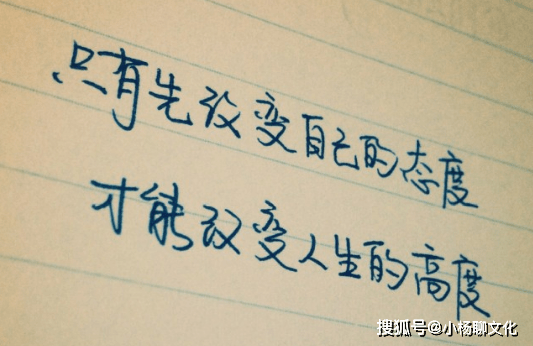 只有先改变自己的态度
才能改变人生的高度
搜狐号@小杨聊文化